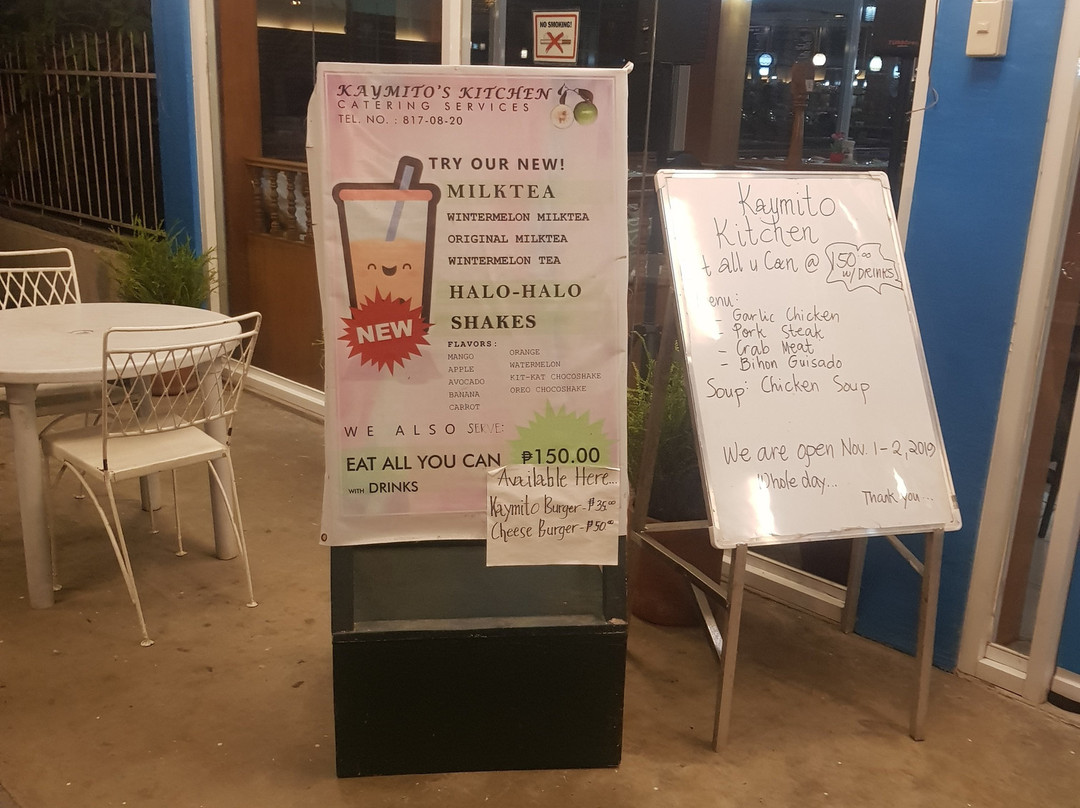 NO SMOKING!
KAYMITO'S KITCHEN
CATERING SERVICES
TEL. NO. : 817-08-20
TRY OUR NEW!
MILKTEA
WINTERMELON MILKTEA
ORIGINAL MILKTEA
WINTERMELON TEA
HALO-HALO
SHAKES
NEW
FLAVORS:
MANGO
APPLE
AVOCADO
BANANA
CARROT
ORANGE
WATERMELON
KIT-KAT CHOCOSHAKE
OREO CHOCOSHAKE
WE ALSO SERVE:
EAT ALL YOU CAN ₱150.00
WITH DRINKS
Available Here...
Kaymito Burger - ₱35.00
Cheese Burger - ₱50.00
Kaymito
Kitchen
t all u Can @ 150.00
w/ DRINKS
enu:
- Garlic Chicken
- Pork Steak
- Crab Meat
- Bihon Guisado
Soup: Chicken Soup
We are open Nov. 1-2, 2019
Whole day...
Thank you...